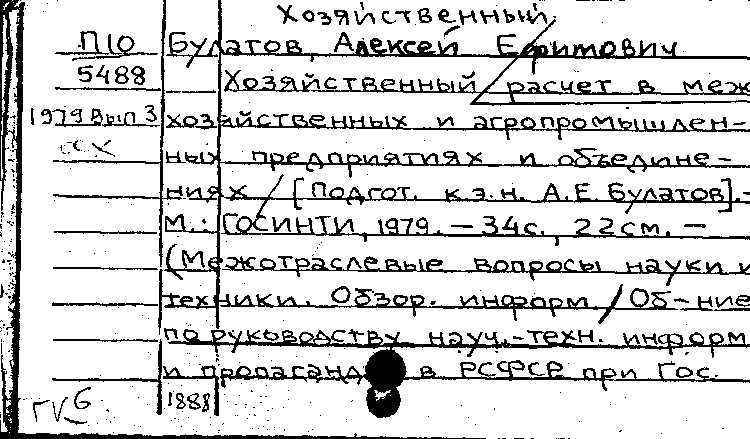 Хозяйственный
П10 Булатов, Алексей Ефимович
5488 Хозяйственный расчет в меж
1979 Вып 3 хозяйственных и агропромышлен-
ных предприятиях и объедине-
ниях / [Подгот. к.э.н. А.Е. Булатов].-
М.: ГОСИНТИ, 1979. - 34с., 22см. -
(Межотраслевые вопросы науки и
техники. Обзор. информ / Об-ние
по руководству науч.-техн. информ
и пропаганд в РСФСР при Гос.
1888